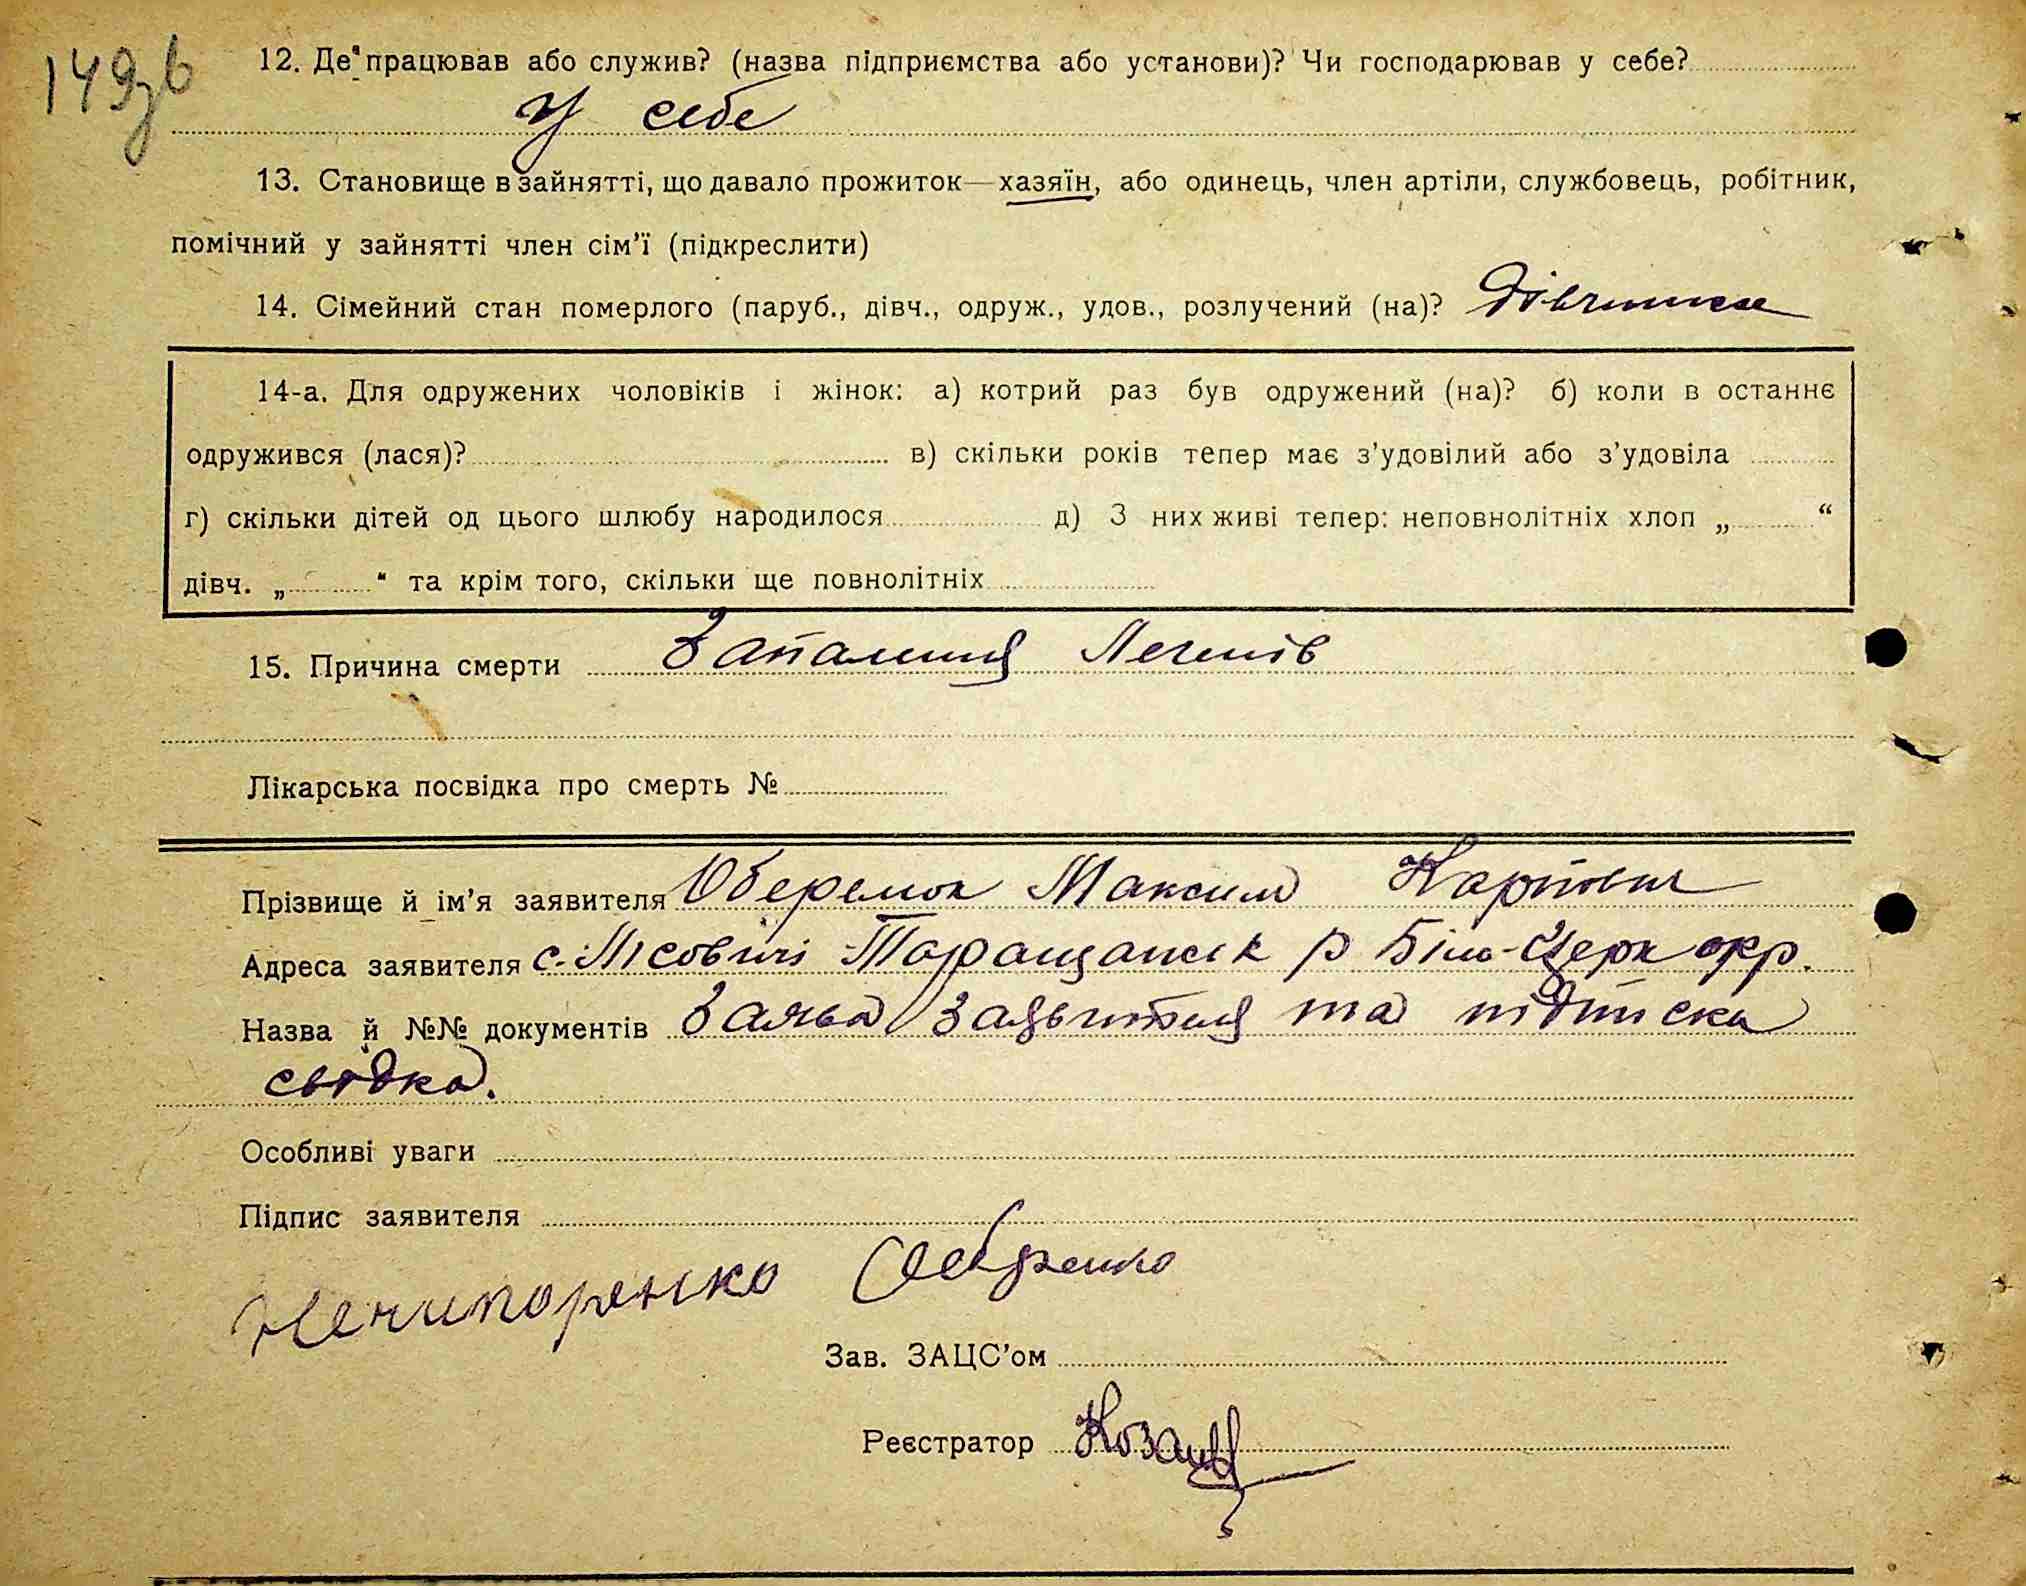 149зв
12. Де працював або служив? (назва підприємства або установи)? Чи господарював у себе?
У себе
13. Становище в зайнятті, що давало прожиток—хазяїн, або одинець, член артіли, службовець, робітник,
помічний у зайнятті член сім’ї (підкреслити)
14. Сімейний стан померлого (паруб., дівч., одруж., удов., розлучений (на)? Дівчинка
14-а. Для одружених чоловіків і жінок: а) котрий раз був одружений (на)? б) коли в останнє
одружився (лася)? в) скільки років тепер має з’удовілий або з’удовіла
г) скільки дітей од цього шлюбу народилося д) З них живі тепер: неповнолітніх хлоп „ “
дівч. „ “ та крім того, скільки ще повнолітніх
15. Причина смерти Запалення Легенів
Лікарська посвідка про смерть №
Прізвище й ім’я заявителя Оберемок Максим Карпович
Адреса заявителя с. Лісовичі Таращанськ р Біло-Церк окр.
Назва й №№ документів Заява Заявителя та підписка
свідка.
Особливі уваги
Підпис заявителя
Ничипоренко
Зав. ЗАЦС’ом
Реєстратор